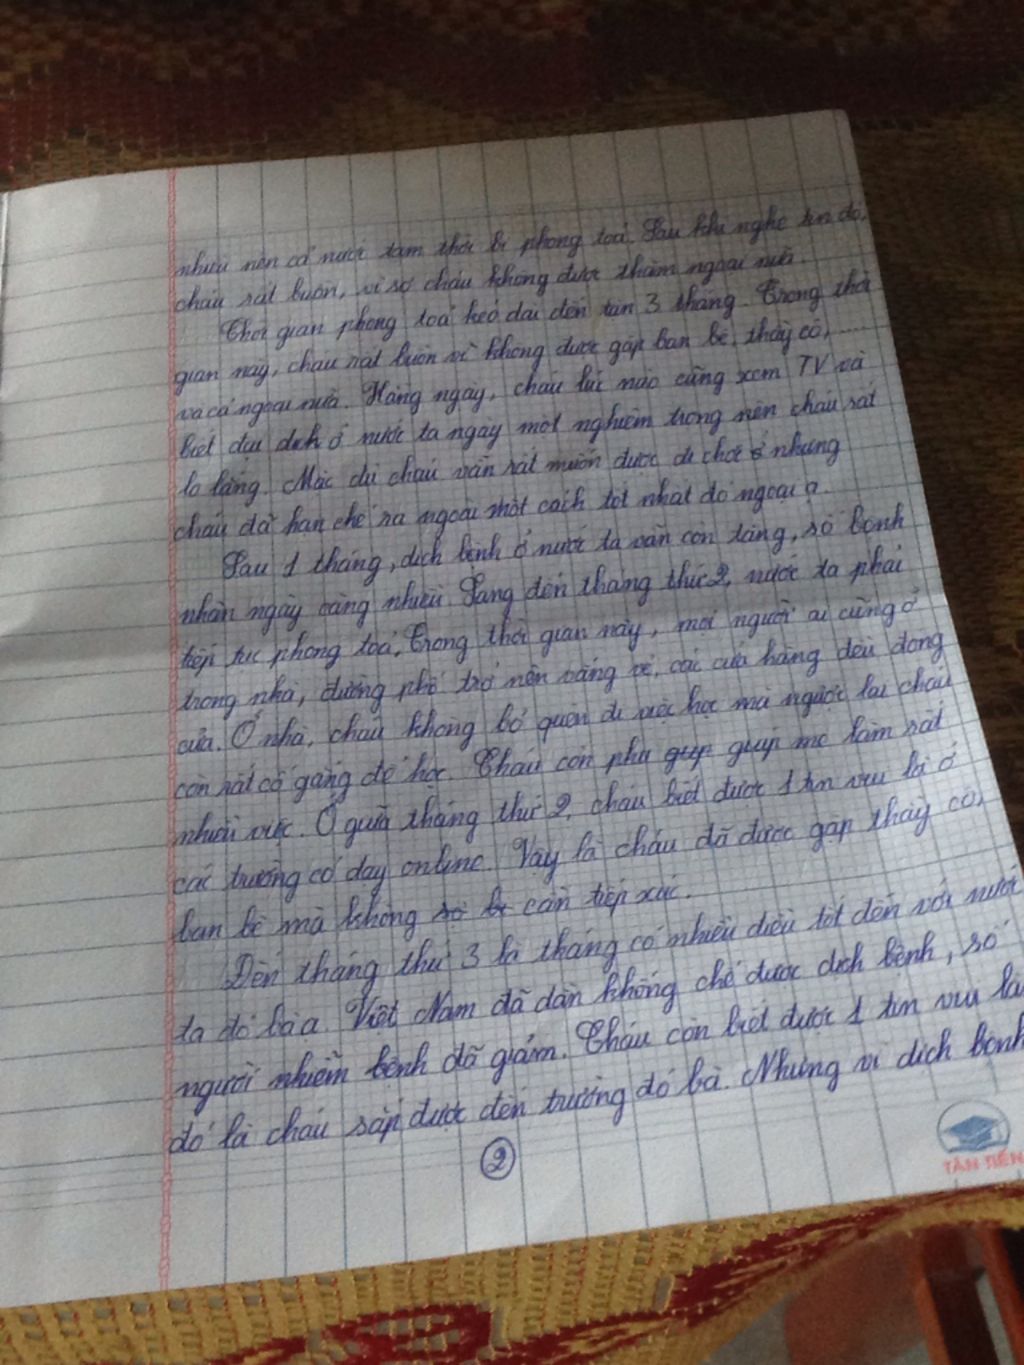 nhiều nên cả nước tạm thời bị phong toả. Sau khi nghe tin đó,
cháu rất buồn, vì sợ cháu không được thăm ngoại nữa.
Thời gian phong toả kéo dài đến tận 3 tháng. Trong thời
gian này, cháu rất buồn vì không được gặp bạn bè, thầy cô,......
và cả ngoại nữa. Hàng ngày, cháu lúc nào cũng xem TV và
biết đại dịch ở nước ta ngày một nghiêm trọng nên cháu rất
lo lắng. Mặc dù cháu vẫn rất muốn được đi chơi nhưng
cháu đã hạn chế ra ngoài một cách tốt nhất đó ngoại ạ.
Sau 1 tháng, dịch bệnh ở nước ta vẫn còn tăng, số bệnh
nhân ngày càng nhiều. Sang đến tháng thứ 2, nước ta phải
tiếp tục phong toả. Trong thời gian này, mọi người ai cũng ở
trong nhà, đường phố trở nên vắng vẻ, các cửa hàng đều đóng
cửa. Ở nhà, cháu không bỏ quên đi việc học mà ngược lại cháu
còn rất cố gắng để học. Cháu còn phụ giúp giúp mẹ làm rất
nhiều việc. Ở giữa tháng thứ 2, cháu biết được 1 tin vui là ở
các trường có dạy online. Vậy là cháu đã được gặp thầy cô,
bạn bè mà không sợ bị cần tiếp xúc.
Đến tháng thứ 3 là tháng có nhiều điều tốt đến với nước
ta đó bà ạ. Việt Nam đã dần khống chế được dịch bệnh, số
người nhiễm bệnh đã giảm. Cháu còn biết được 1 tin vui là
đó là cháu sắp được đến trường đó bà. Nhưng vì dịch bệnh
2
TÂN TIẾN